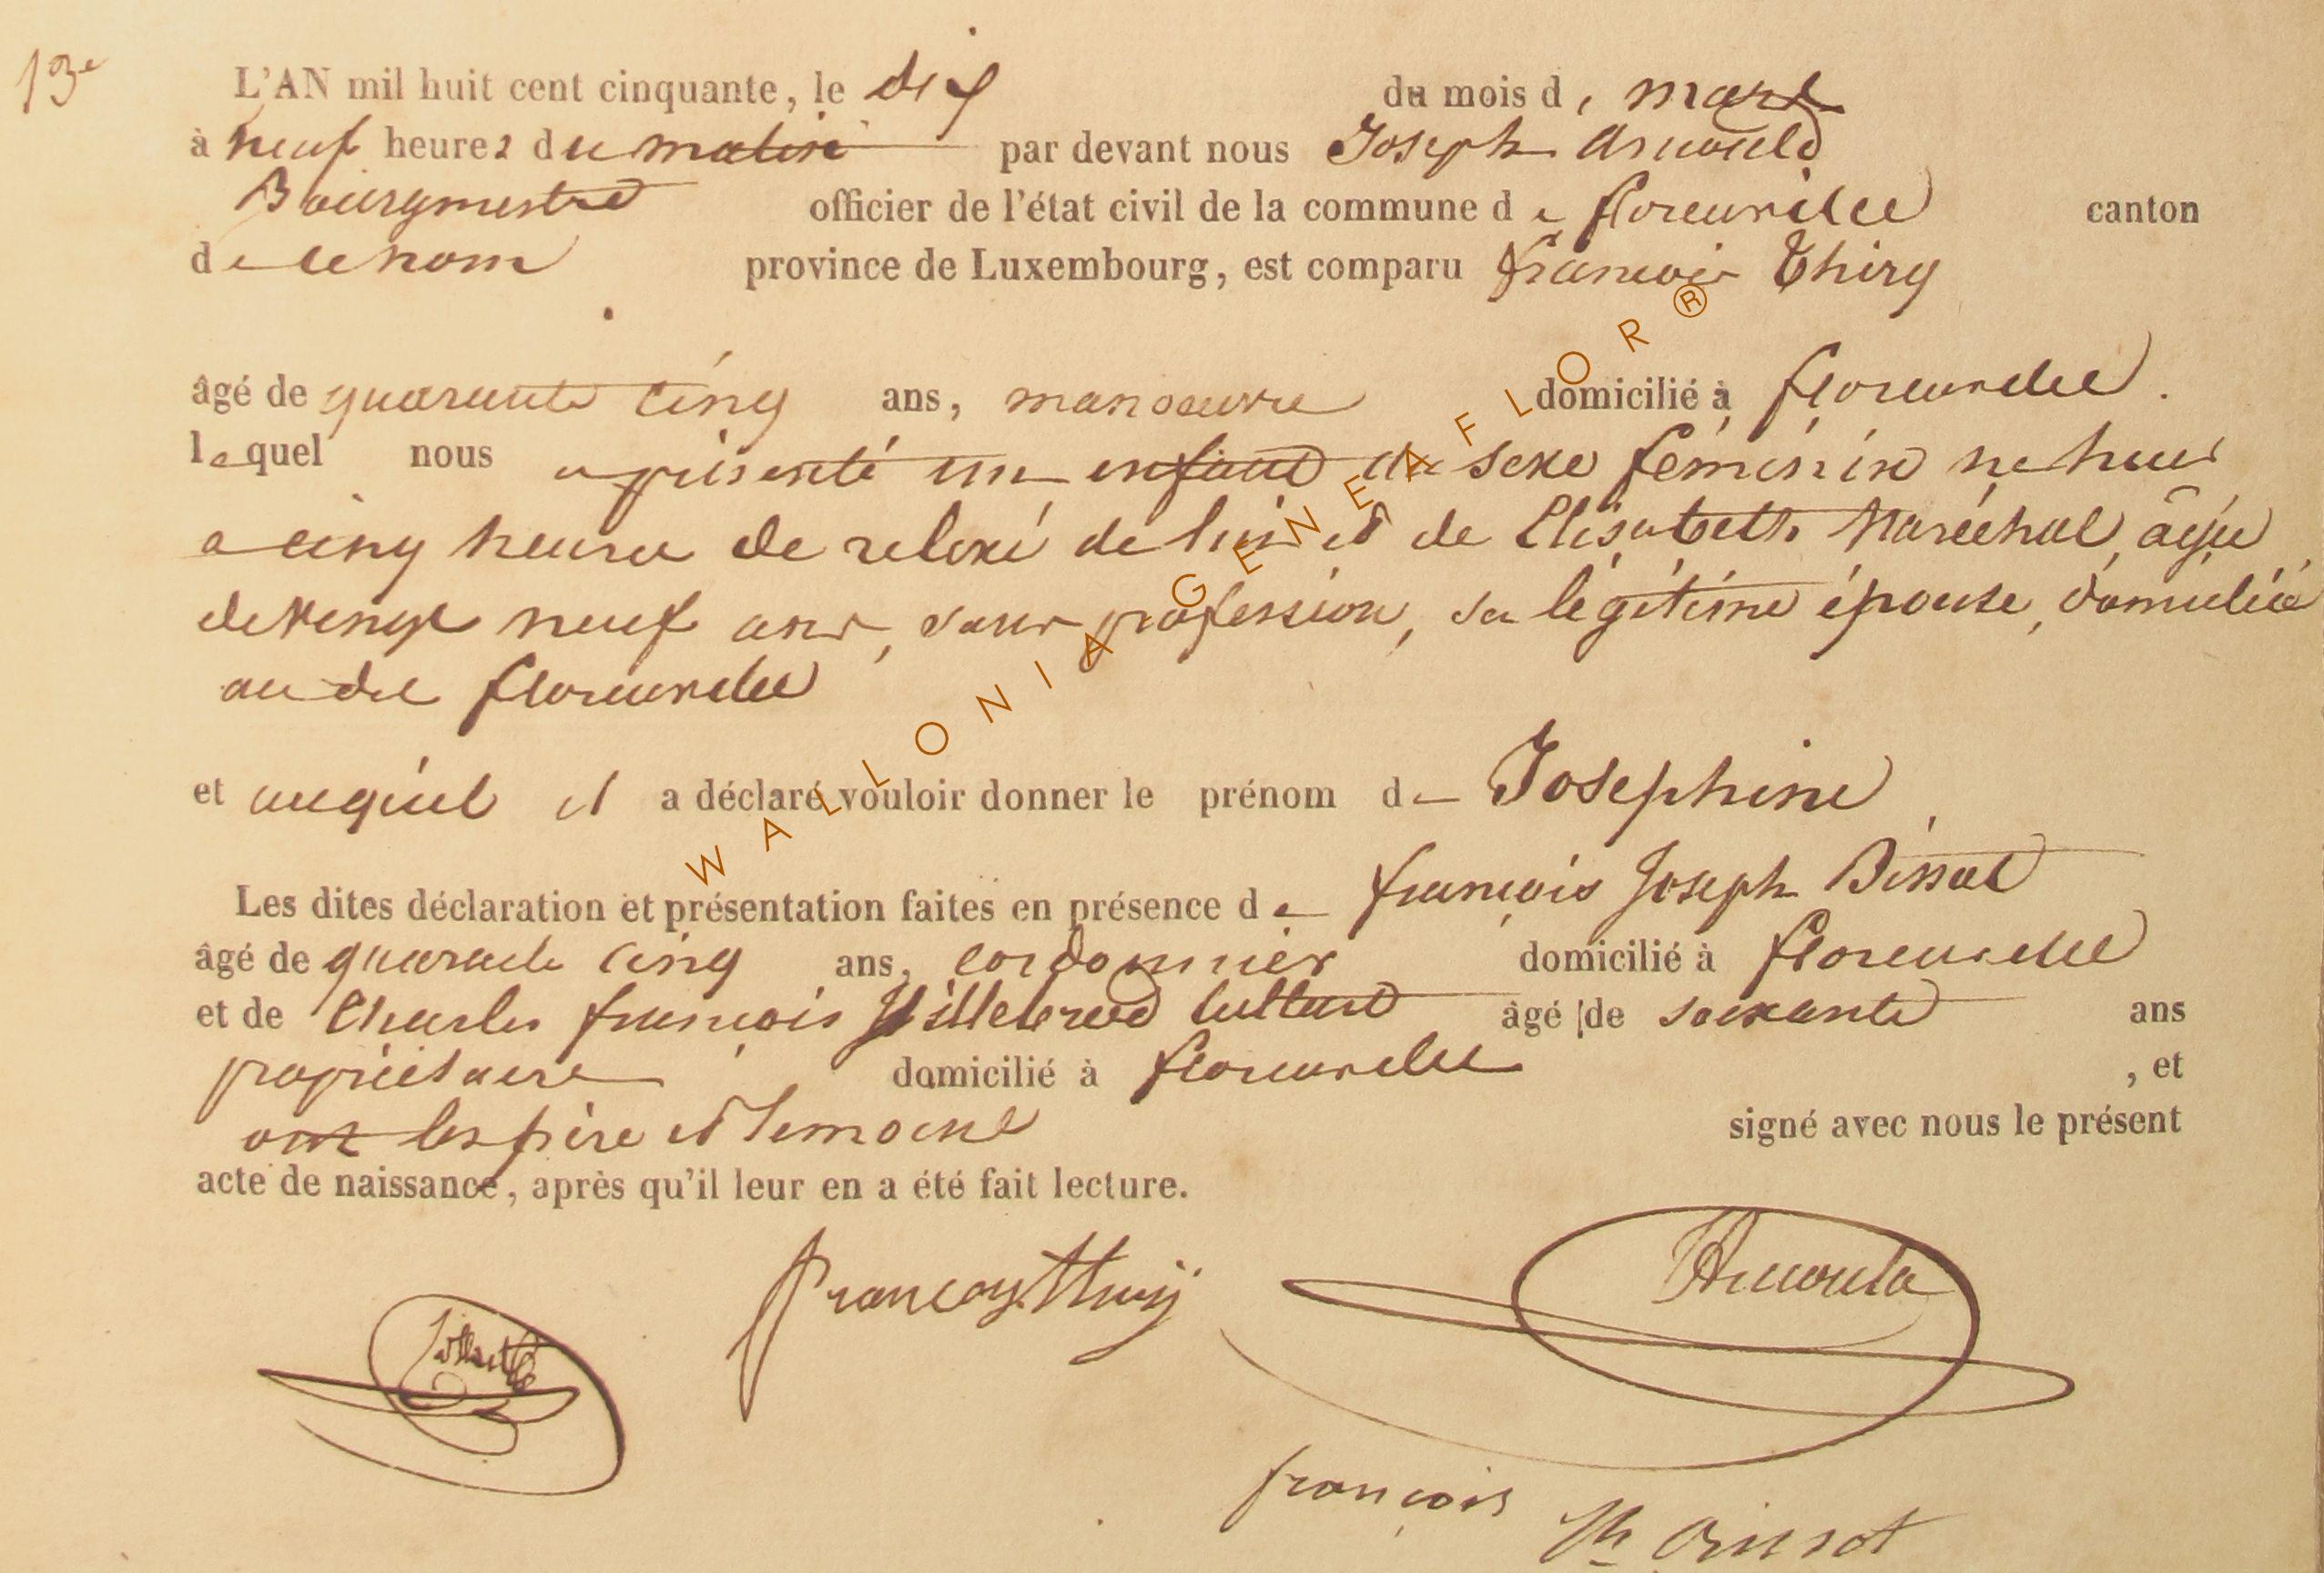 13e
L'AN mil huit cent cinquante, le dix du mois de mars
à neuf heures du matin par devant nous Joseph Arnould
Bourgmestre officier de l'état civil de la commune de florenville canton
de ce nom province de Luxembourg, est comparu françois Thiry
âgé de quarante cinq ans, manoeuvre domicilié à florenville.
lequel nous a présenté un enfant du sexe féminin né hier
a cinq heures de relevé de lui et de Elisabeth Maréchal, âgée
de vingt neuf ans, sans profession, sa légitime épouse, domiciliée
au dit florenville
et auquel il a déclaré vouloir donner le prénom de Josephine
Les dites déclaration et présentation faites en présence de françois Joseph
âgé de quarante cinq ans, cordonnier domicilié à florenville
et de Charles françois âgé de soixante ans
propriétaire domicilié à florenville , et
ont les père et temoins signé avec nous le présent
acte de naissance, après qu'il leur en a été fait lecture.
françois Thiry
JArnould
françois
WALLONIA GENEAFLOR®